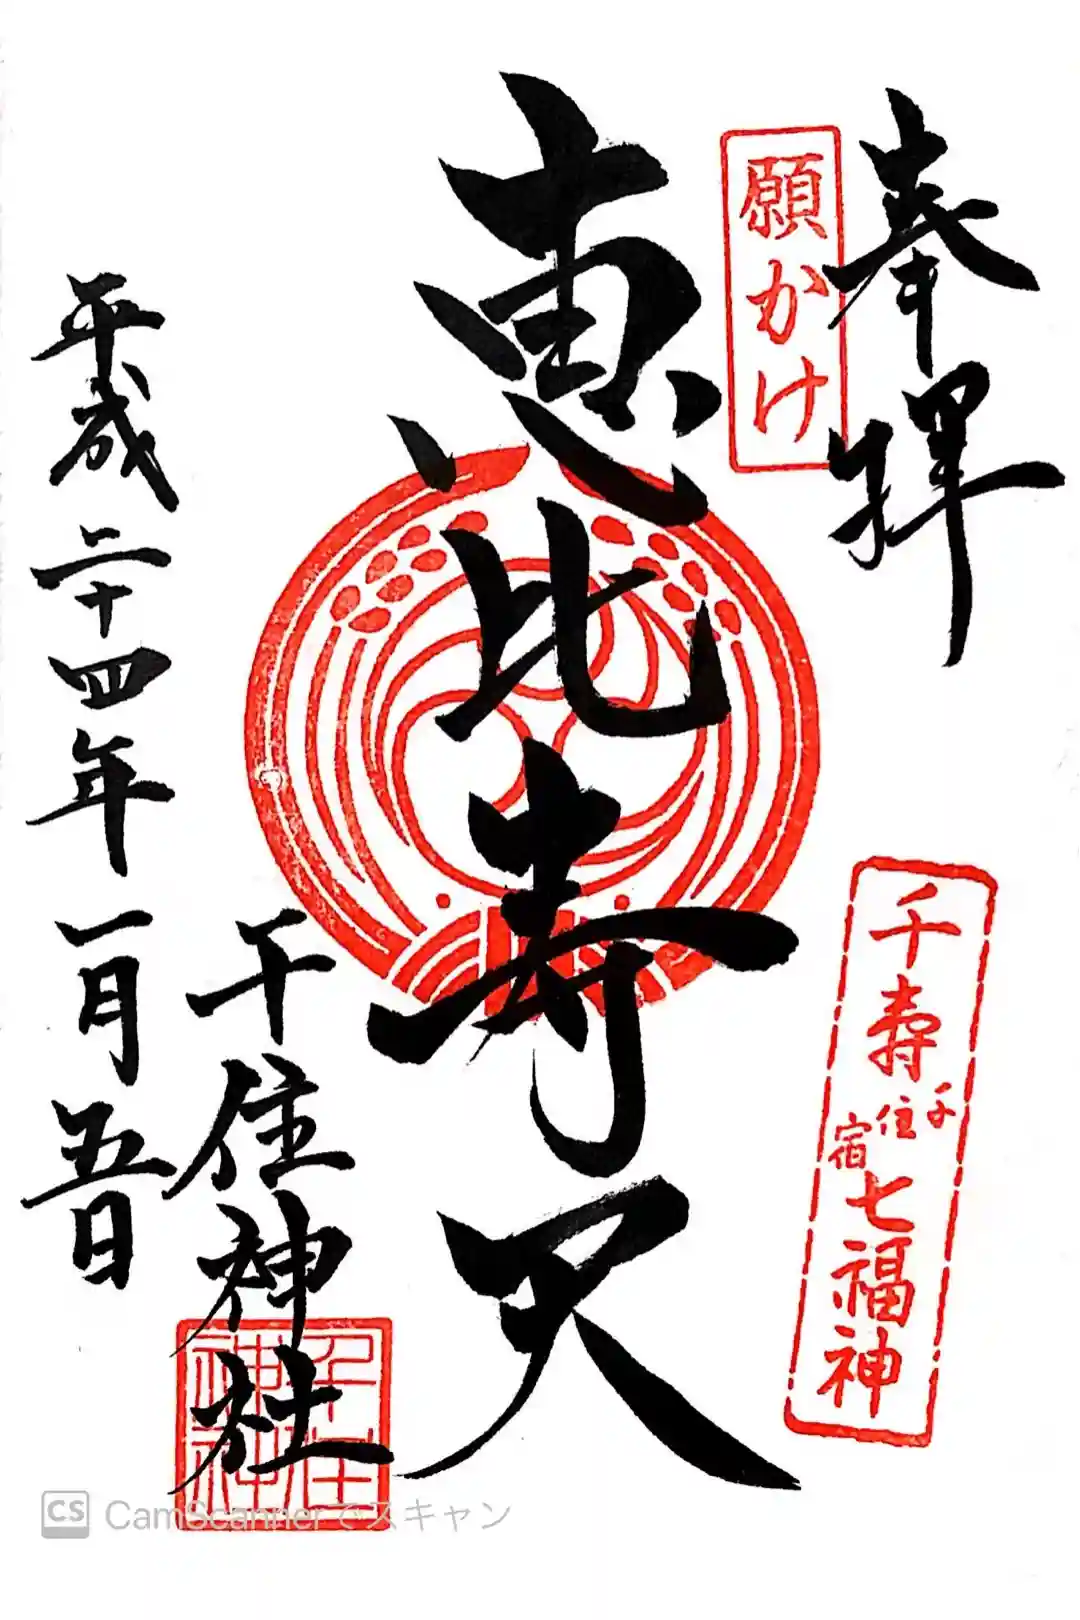 奉拝
願かけ
千寿
千住宿
七福神
恵比寿天
千住神社
平成二十四年一月五日
CS CamScannerでスキャン